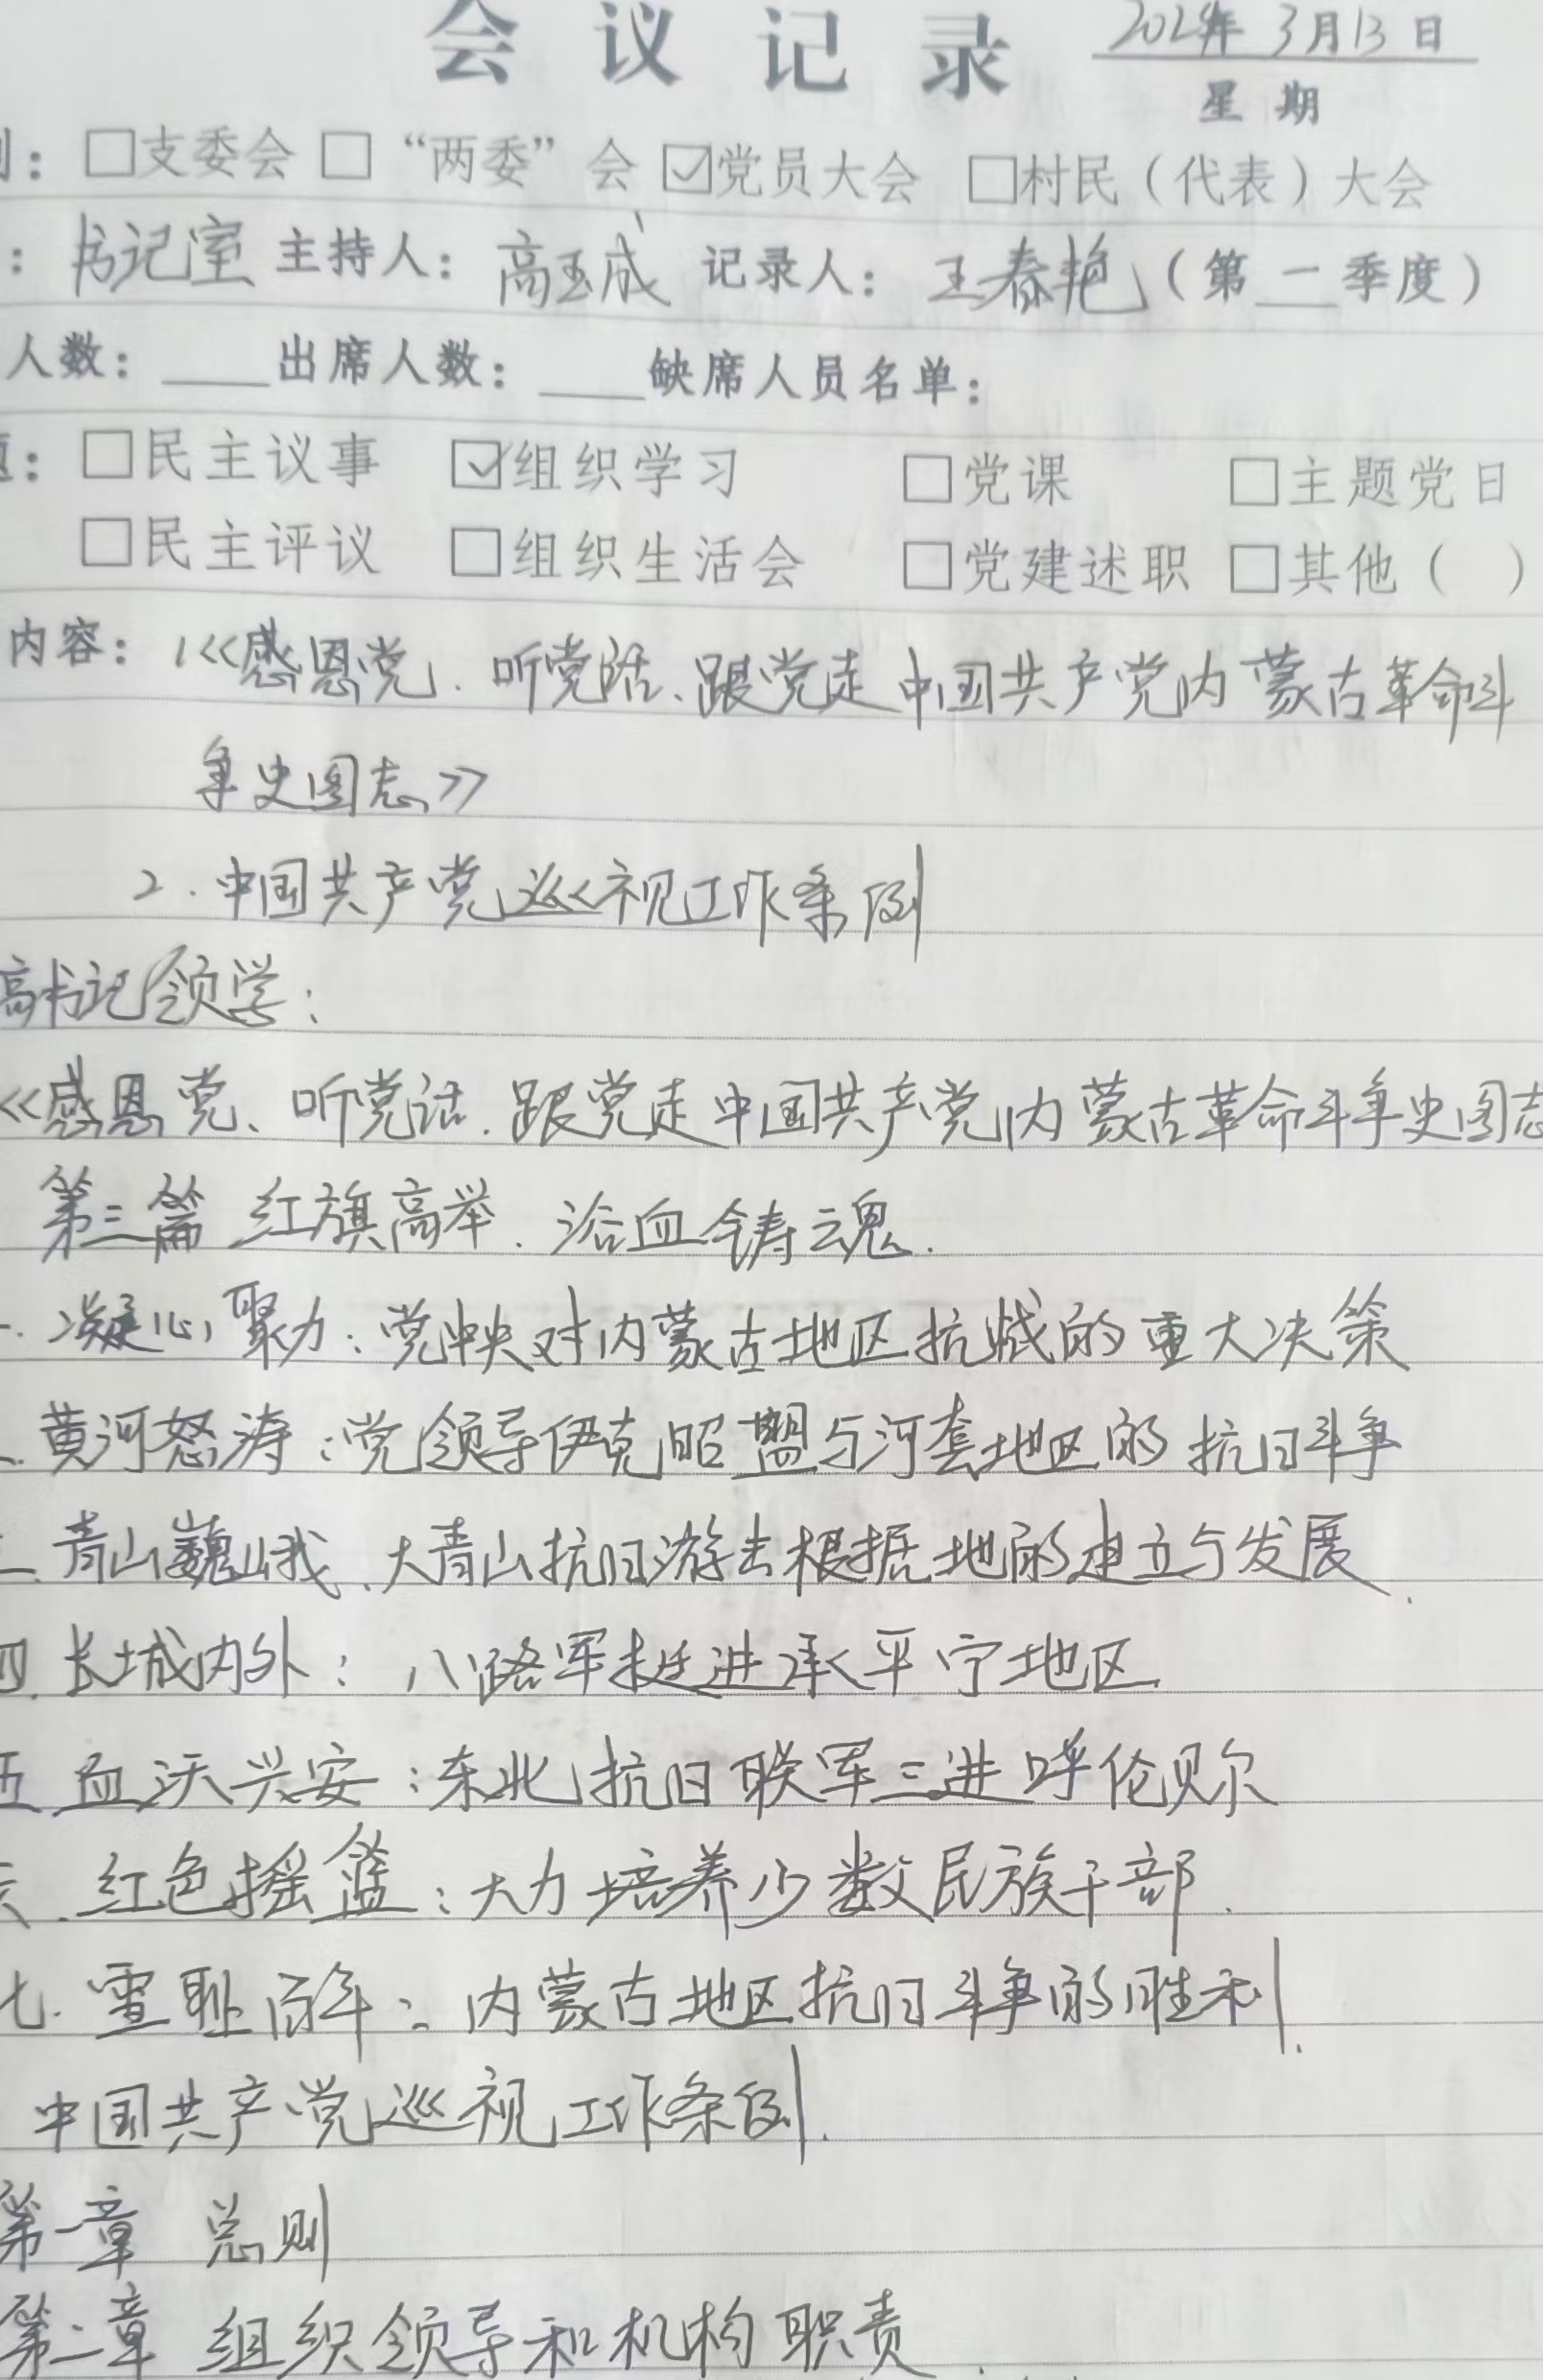 会议记录 2024年3月13日
星期
：□支委会 □“两委”会 ☑党员大会 □村民（代表）大会
：书记室 主持人：高玉成 记录人：王春艳（第一季度）
人数：____出席人数：____缺席人员名单：
：□民主议事 ☑组织学习 □党课 □主题党日
□民主评议 □组织生活会 □党建述职 □其他（ ）
内容：1《感恩党、听党话、跟党走中国共产党内蒙古革命斗
争史图志》
2.中国共产党巡视工作条例
高书记领学：
《感恩党、听党话、跟党走中国共产党内蒙古革命斗争史图志
第三篇 红旗高举、浴血铸魂.
一.凝心聚力：党中央对内蒙古地区抗战的重大决策
二.黄河怒涛：党领导伊克昭盟与河套地区的抗日斗争
三.青山巍峨、大青山抗日游击根据地的建立与发展.
四.长城内外：八路军挺进承平宁地区
五.血沃兴安：东北抗日联军三进呼伦贝尔
六.红色摇篮：大力培养少数民族干部.
七.雪耻百年：内蒙古地区抗日斗争的胜利.
中国共产党巡视工作条例.
第一章 总则
第二章 组织领导和机构职责